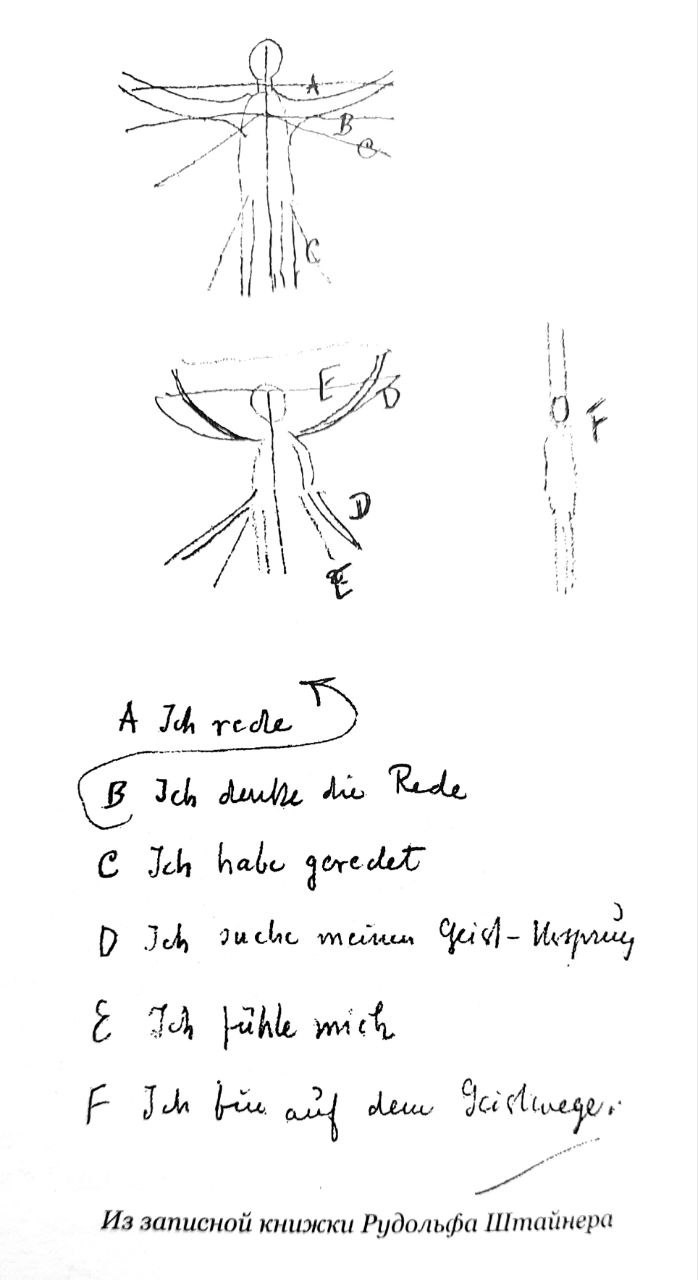 A
B
C
C
E
D
F
D
E
A Ich rede
B Ich denke die Rede
C Ich habe geredet
D Ich suche meinen Geist-Ursprung
E Ich fühle mich
F Ich bin auf dem Geistwege.
Из записной книжки Рудольфа Штайнера